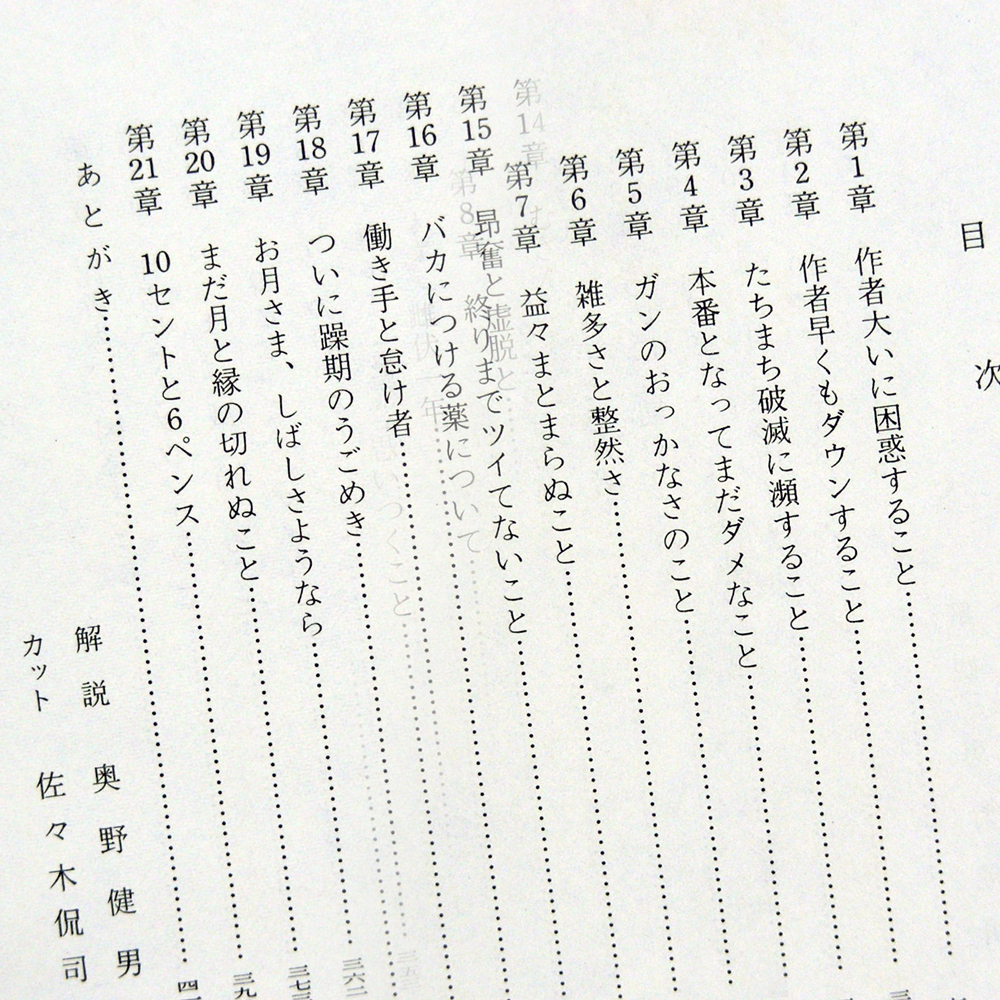 目次
第1章 作者大いに困惑すること
第2章 作者早くもダウンすること
第3章 たちまち破滅に瀕すること
第4章 本番となってまだダメなこと
第5章 ガンのおっかなさのこと
第6章 雑多さと整然さ
第7章 益々まとまらぬこと
第8章 終りまでツイてないこと
第14章
第15章 昂奮と虚脱と
第16章 バカにつける薬について
第17章 働き手と怠け者
第18章 ついに躁期のうごめき 三六二
第19章 お月さま、しばしさようなら 三七三
第20章 まだ月と縁の切れぬこと
第21章 10セントと6ペンス
あとがき
解説 奥野健男
カット 佐々木侃司